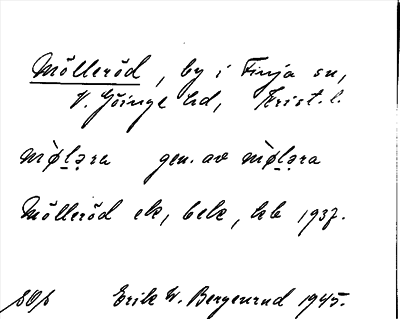 Mölleröd, by i Finja sn,
V. Göinge hd, Krist. l.
mø̀lǝra gen. av mø̀lǝra
Mölleröd ek, bek, kb 1937.
Erik W. Bergenrud 1945.